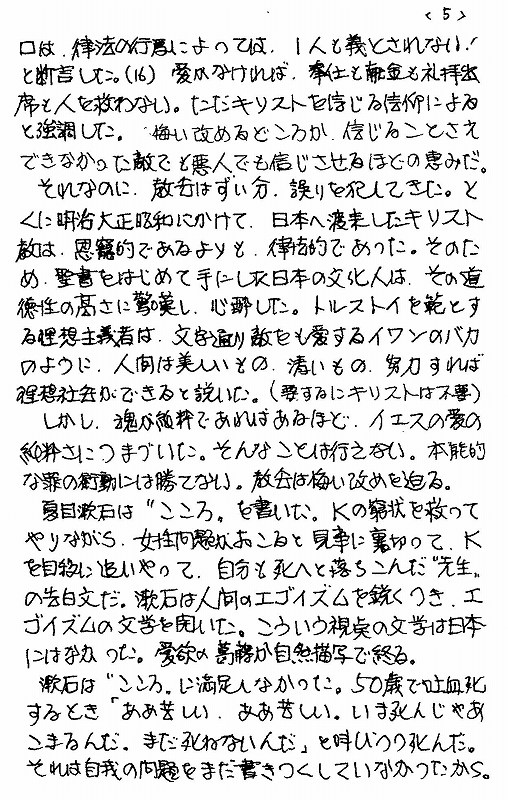 <5>
ロは、律法の行為によっては、1人も義とされない!
と断言した。(16) 愛がなければ、奉仕も献金も礼拝出
席も人を救わない。ただキリストを信じる信仰による
と強調した。 悔い改めるどころか、信じることさえ
できなかった敵でも悪人でも信じさせるほどの恵みだ。
それなのに、教会はずい分、誤りを犯してきた。と
くに明治大正昭和にかけて、日本へ渡来したキリスト
教は、恩寵的であるよりも、律法的であった。そのた
め、聖書をはじめて手にした日本の文化人は、その道
徳性の高さに驚嘆し、心酔した。トルストイを範とす
る理想主義者は、文字通り敵をも愛するイワンのバカ
のように、人間は美しいもの、清いもの、努力すれば
理想社会ができると説いた。(要するにキリストは不要)
しかし、魂が純粋であればあるほど、イエスの愛の
純粋さにつまづいた。そんなことは行えない。本能的
な罪の衝動には勝てない。教会は悔い改めを迫る。
夏目漱石は〝こころ〟を書いた。Kの窮状を救って
やりながら、女性問題がおこると見事に裏切って、K
を自殺に追いやって、自分も死へと落ちこんだ〝先生〟
の告白文だ。漱石は人間のエゴイズムを鋭くつき、エ
ゴイズムの文学を開いた。こういう視点の文学は日本
にはなかった。愛欲の葛藤が自然描写で終る。
漱石は〝こころ〟に満足しなかった。50歳で吐血死
するとき「ああ苦しい、ああ苦しい。いま死んじゃあ
こまるんだ。まだ死ねないんだ」と叫びつつ死んだ。
それは自我の問題をまだ書きつくしていなかったから。